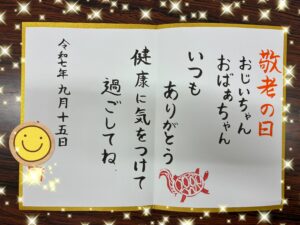 敬老の日
おじいちゃん
おばぁちゃん
いつも
ありがとう
健康に気をつけて
過ごしてね
令和七年 九月十五日